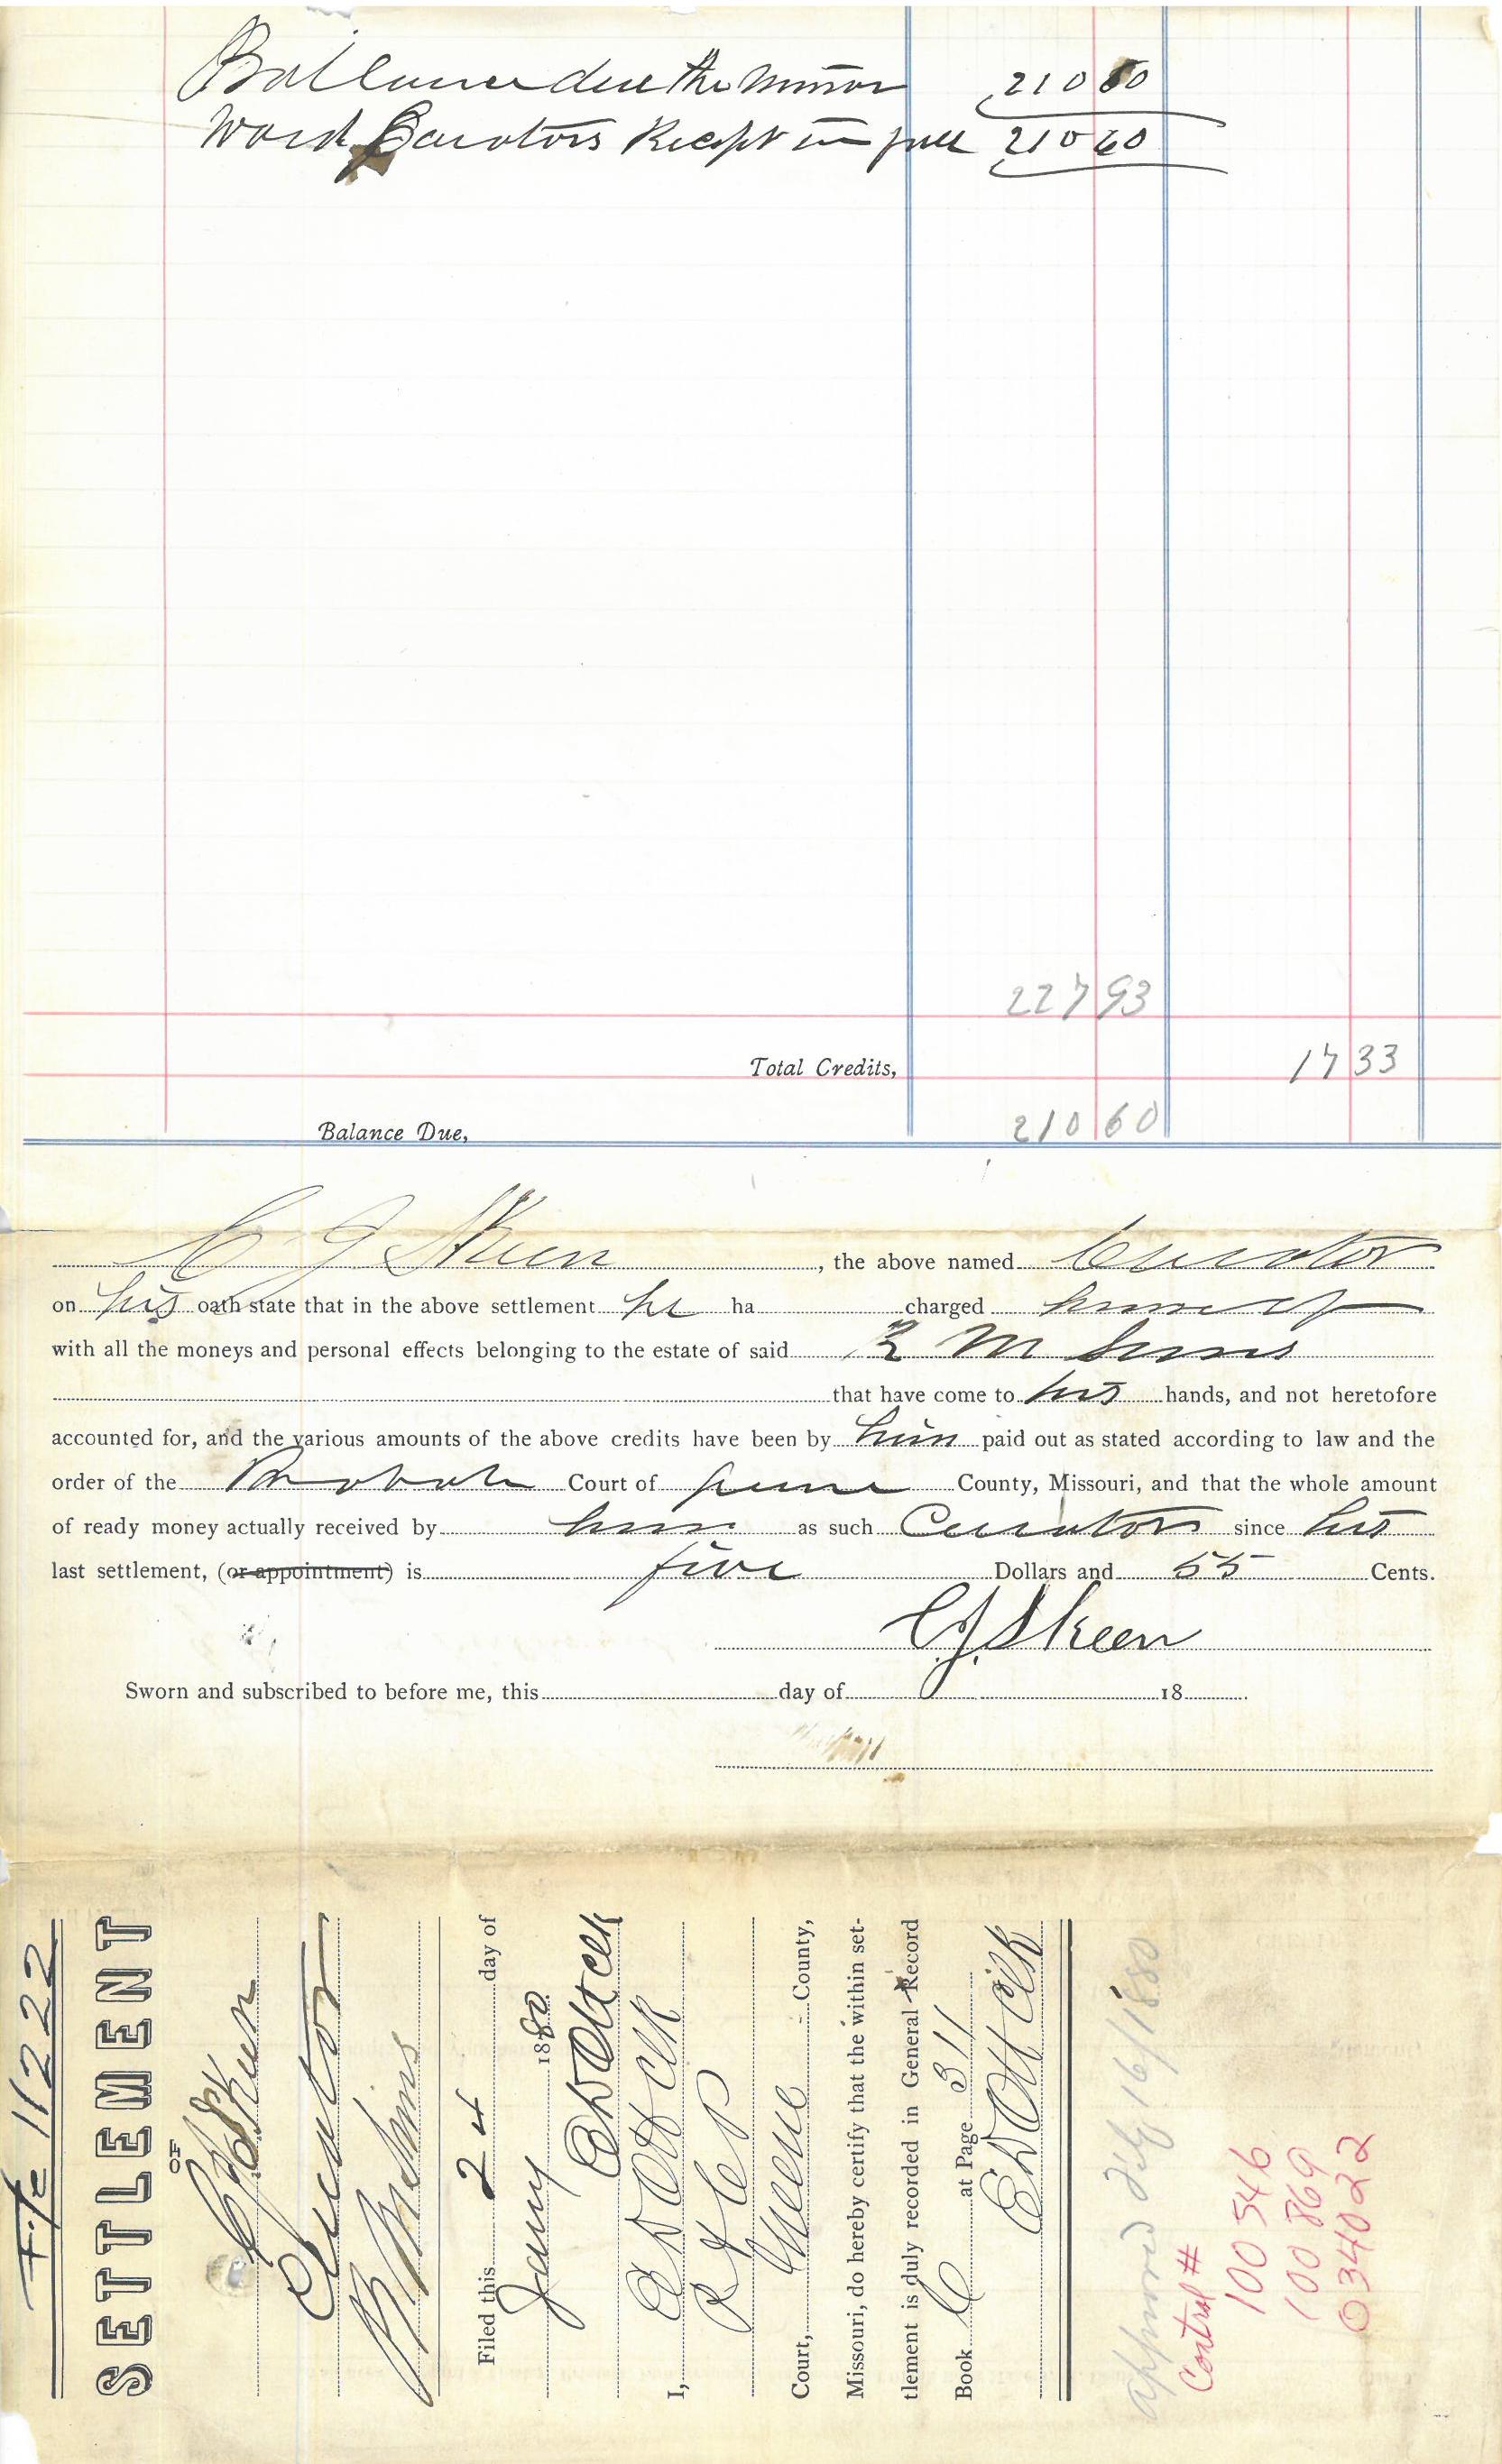 Ballance due the minor 210 60
Ward Curators Recept in full 210 60
227 93
Total Credits, 17 33
Balance Due, 210 60
C J Skeen, the above named Curator
on his oath state that in the above settlement he ha charged himself
with all the moneys and personal effects belonging to the estate of said R M Sims
that have come to his hands, and not heretofore
accounted for, and the various amounts of the above credits have been by him paid out as stated according to law and the
order of the Probate Court of Greene County, Missouri, and that the whole amount
of ready money actually received by him as such Curator since his
last settlement, (or appointment) is five Dollars and 55 Cents.
C. J. Skeen
Sworn and subscribed to before me, this day of 18
File 11222
SETTLEMENT
OF
C J Skeen
Curator
R M Sims
Filed this 24 day of
Jany 1880
E D Ott Clk
I, E D Ott Clk
Court, Greene County,
Missouri, do hereby certify that the within set-
tlement is duly recorded in General Record
Book C at Page 311
E D Ott Clk
approved Feby 16/1880
Control #
100 546
100 869
034022